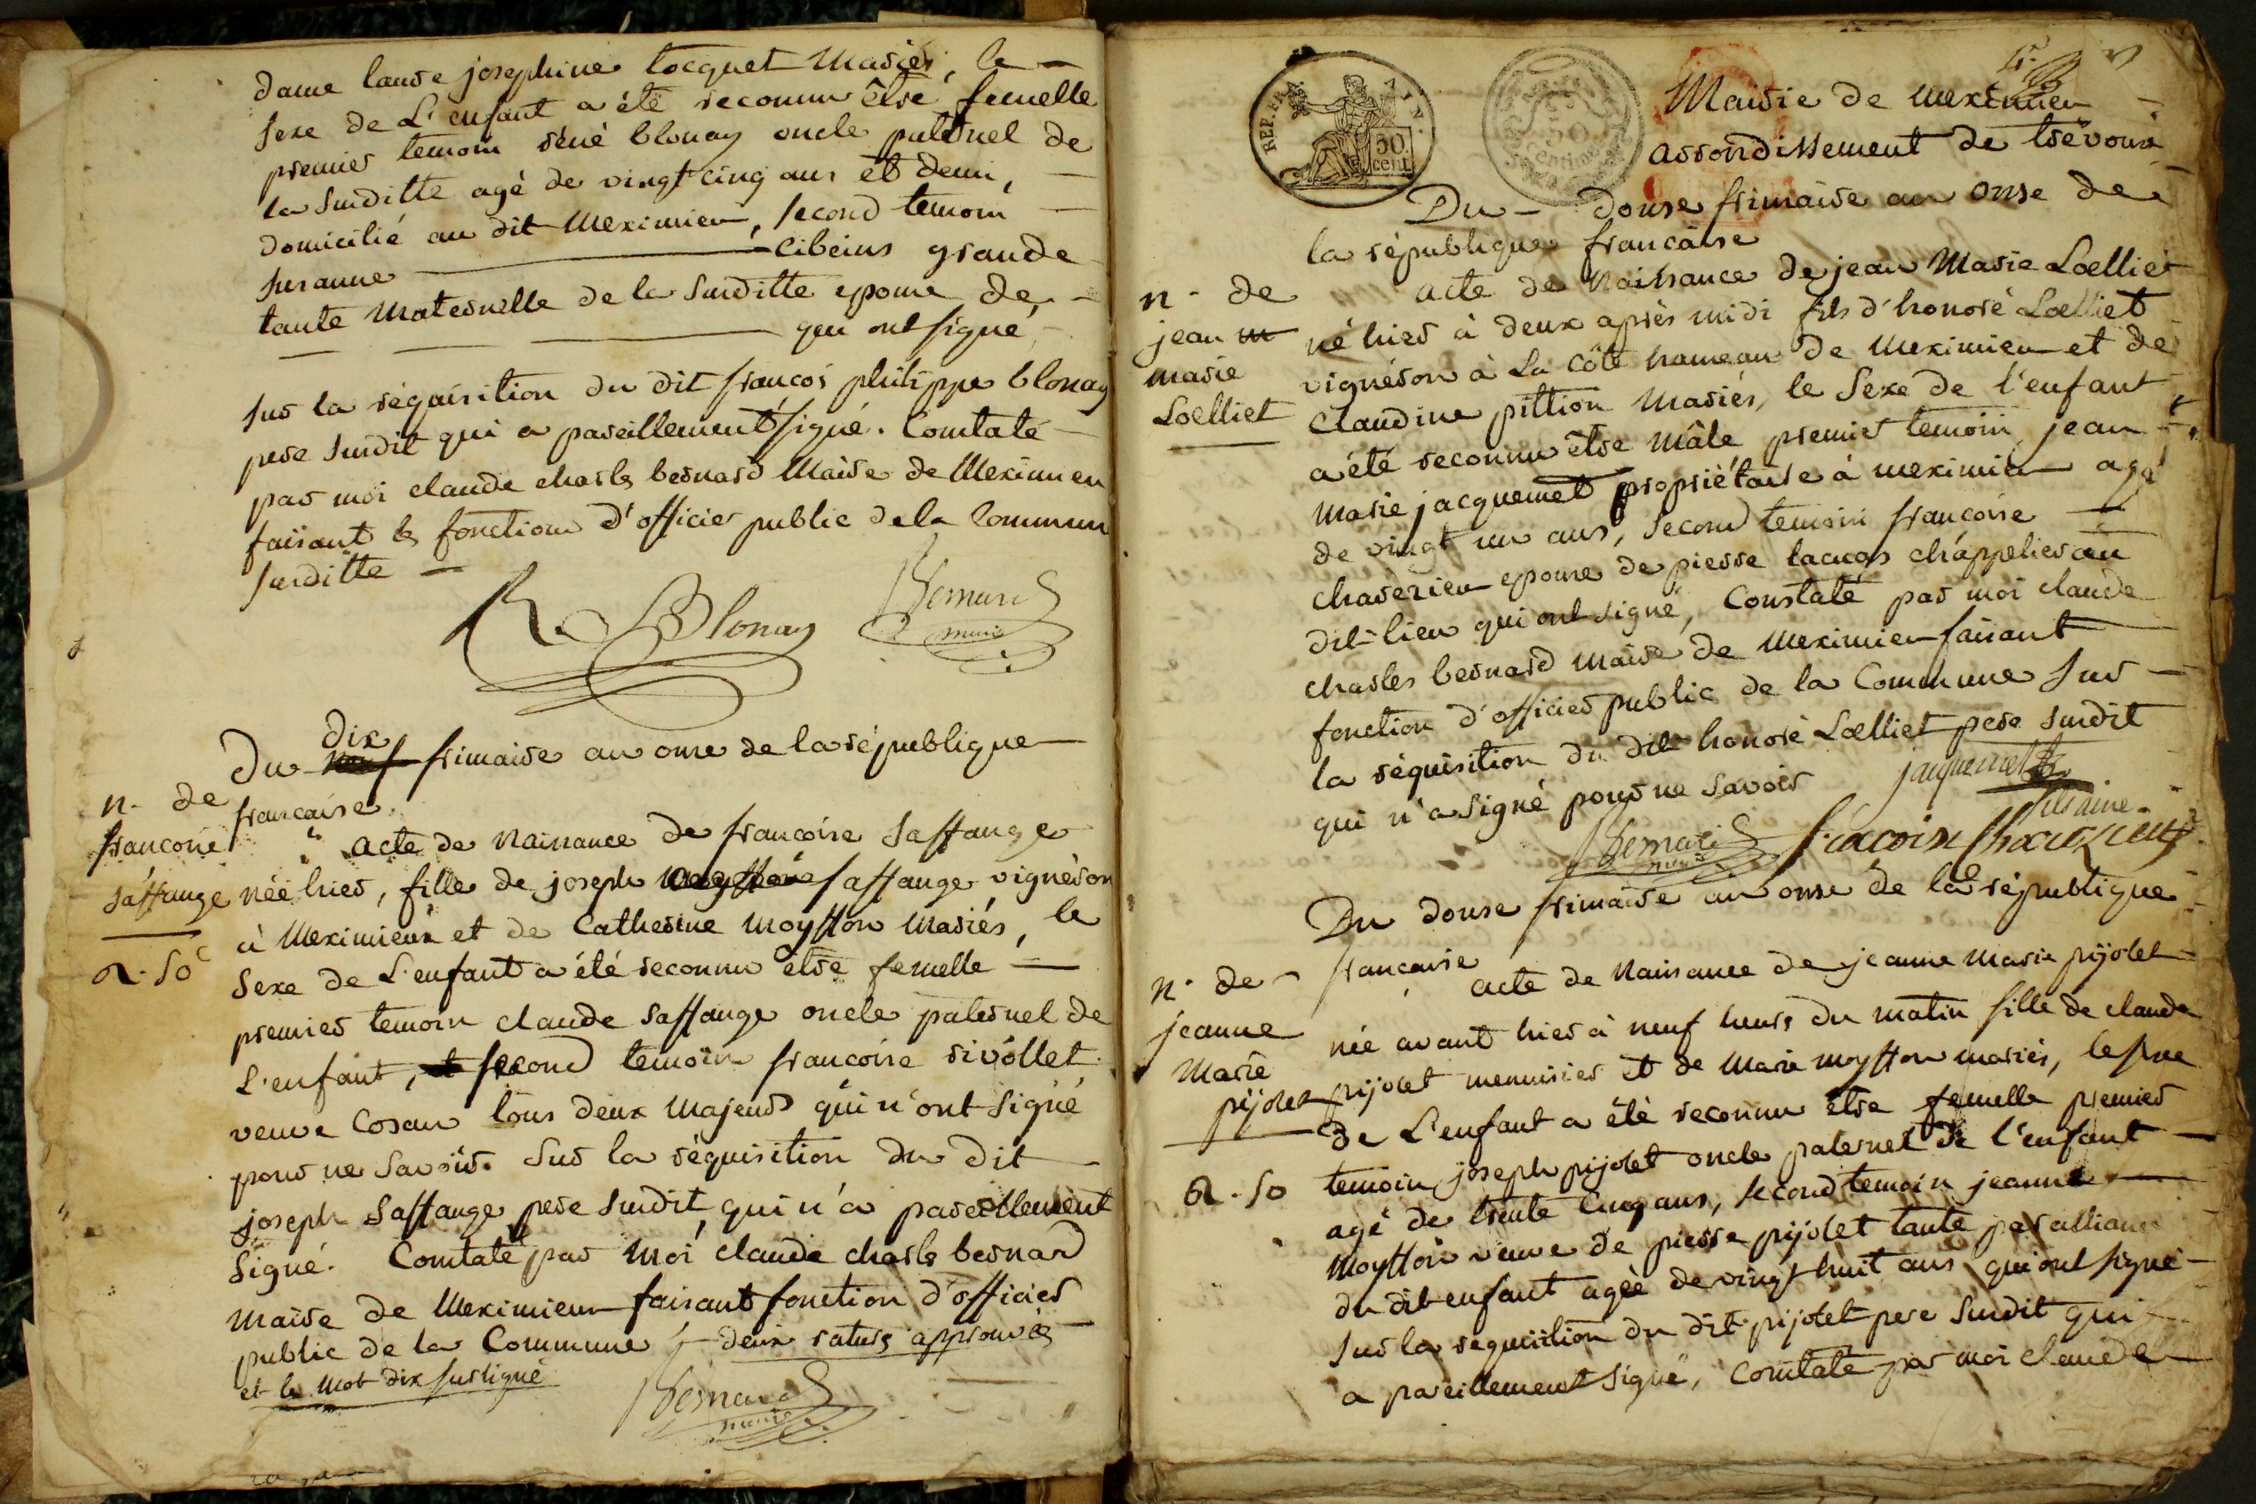 dame laure josephine tocquet mariés, le
sexe de L'enfant a été reconnu être femelle
premier temoin réné blonay oncle paternel de
la surditte agé de vingt cinq ans et demi,
domicilié au dit Meximieu, second temoin
susanne cibeins grande
tante maternelle de la surditte epouse de
qui ont signé
sur la réquisition du dit françois philippe blonay
pere surdit qui a pareillement signé. Constaté
par moi claude charles bernard Maire de Meximieu
faisant les fonctions d'officier public de la Commune
surditte
R. Blonay Bernard
maire
dix
Du neuf frimaire an onse de la république
n. de francaise
francoise acte de naissance de francoise saffange
saffange néé hier, fille de joseph saffange vignéron
à Meximieux et de Catherine moytton mariés, le
R. 50c sexe de L'enfant a été reconnu être femelle
premier temoin claude saffange oncle paternel de
L'enfant, et second temoin francoise rivollet
veuve Cosan tous deux majeurs qui n'ont signé
pour ne savoir. Sur la réquisition du dit
joseph saffange pere surdit qui n'a pareillement
signé. Constaté par moi claude charles bernard
maire de Meximieu faisant fonction d'officier
public de la Commune deux ratures approuvés
et le mot dix surligné
Bernard
maire
REP. FRA.
50
cent
50
centimes
Mairie de Meximieu
arrondissement de trévoux
Du douse frimaire an onse de
la république francaise
n. de acte de naissance de jean Marie Loelliet
jean m né hier à deux après midi fils d'honoré Loelliet
marie vignéron à La Côte hameau de Meximieu et de
Loelliet Claudine pittion mariés, le sexe de l'enfant
a été reconnu être mâle, premier temoin jean
marie jacquemet propriétaire à meximieu agé
de vingt un ans, second temoin francoise
chavezieu epouse de pierre lacuas cháppelier au
dit lieu qui ont signé, Constaté par moi claude
charles bernard maire de Meximieu faisant
fonction d'officier public de la Commune sur
la réquisition du dit honoré Loelliet pere surdit
qui n'a signé pour ne savoir jaquemet
Bernard
maire
Du douse frimaire an onse de la république
n. de francaise
jeanne acte de Naissance de jeanne marie pijolet
Marie née avant hier à neuf heurs du matin fille de claude
pijolet pijolet menuisier et de Marie moytton mariés, le sexe
de L'enfant a été reconnu être femelle premier
R. 50 temoin joseph pijolet oncle paternel de l'enfant
agé de trente cinq ans, second temoin jeanne
moytton veuve de pierre pijolet tante par alliance
du dit enfant agée de vingt huit ans qui ont signé
sur la réquisition du dit pijolet pere surdit qui
a pareillement signé, Constaté par moi claude